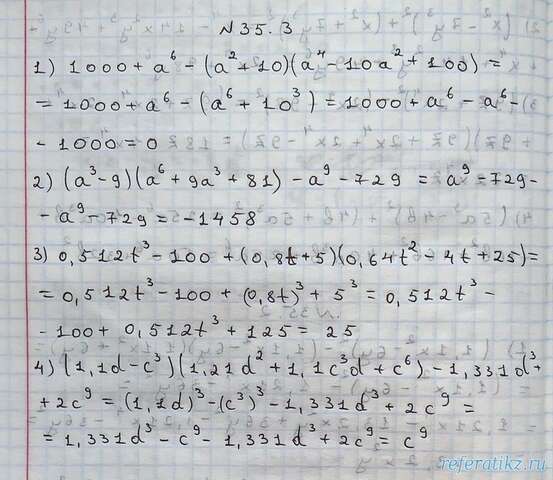 N35.3
1) 1000 + a⁶ - (a² + 10)(a⁴ - 10a² + 100) =
= 1000 + a⁶ - (a⁶ + 10³) = 1000 + a⁶ - a⁶ -
- 1000 = 0
2) (a³ - 9)(a⁶ + 9a³ + 81) - a⁹ - 729 = a⁹ - 729 -
- a⁹ - 729 = -1458
3) 0,512t³ - 100 + (0,8t + 5)(0,64t² - 4t + 25) =
= 0,512t³ - 100 + (0,8t)³ + 5³ = 0,512t³ -
- 100 + 0,512t³ + 125 = 25
4) (1,1d - c³)(1,21d² + 1,1c³d + c⁶) - 1,331d³ +
+ 2c⁹ = (1,1d)³ - (c³)³ - 1,331d³ + 2c⁹ =
= 1,331d³ - c⁹ - 1,331d³ + 2c⁹ = c⁹
referatikz.ru